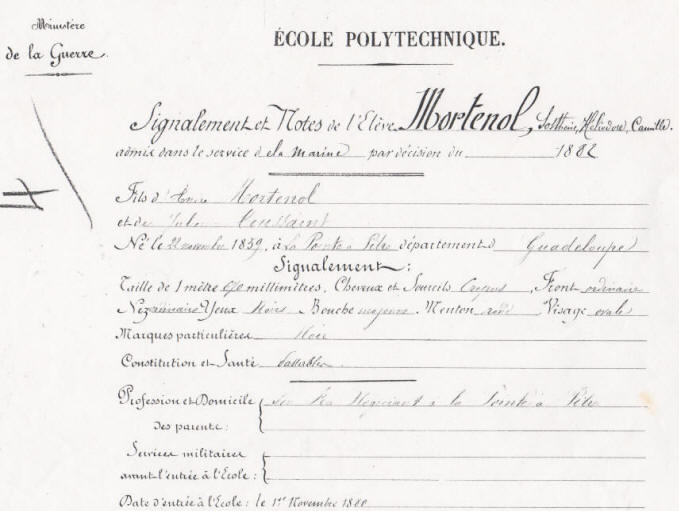 Ministère
de la Guerre.
ÉCOLE POLYTECHNIQUE.
Signalement et Notes de l'Elève Mortenol, Sosthène, Héliodore, Camille.
admis dans le service de la marine par décision du 1882
Fils d' Mortenol
et de Toussaint
Né le 29 novembre 1859, à La Pointe à Pitre département d Guadeloupe
Signalement :
Taille de 1 mètre 670 millimètres, Cheveux et Sourcils Crépus, Front ordinaire
Nez ordinaire Yeux Noirs Bouche moyenne Menton rond Visage ovale
Marques particulières Noir
Constitution et Santé Passables
Profession et Domicile Négociant à la Pointe à Pitre
des parents :
Services militaires
avant l'entrée à l'Ecole :
Date d'entrée à l'Ecole : le 1er Novembre 1880